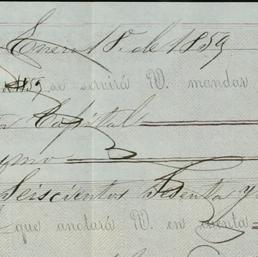 Enero 18. de 1859
1859 se servirá V. mandar
Capital
Seiscientos Sesenta y
que anotará V. en cuenta